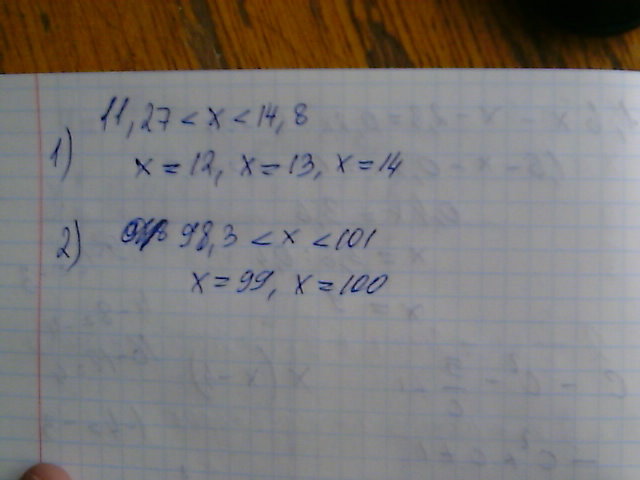 11,27 < x < 14,8
1)
x = 12, x = 13, x = 14
2) 98,3 < x < 101
x = 99, x = 100